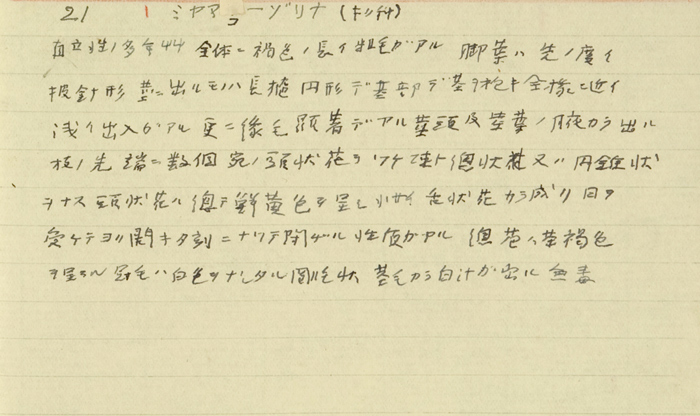 21 ミヤマコーゾリナ (キク科)
直立性ノ多年草 全体ニ褐色ノ長イ粗毛ガアル 脚葉ハ先ノ広イ
披針形 茎ニ出ルモノハ長楕円形デ基部デ茎ヲ抱キ全縁ニ近イ
浅イ出入ガアル 更ニ縁毛顕著デアル 茎頭及茎葉ノ腋カラ出ル
枝ノ先端ニ数個宛ノ頭状花ヲツケ 総状又ハ円錐状
ヲナス 頭状花ハ総テ鮮黄色ヲ呈シ 舌状花カラ成リ 日ヲ
受ケテヨリ開キ夕刻ニナリテ閉ヂル性質ガアル 総苞ハ茶褐色
ヲ呈シ 冠毛ハ白色 剛毛状 茎カラ白汁ガ出ル 無毒